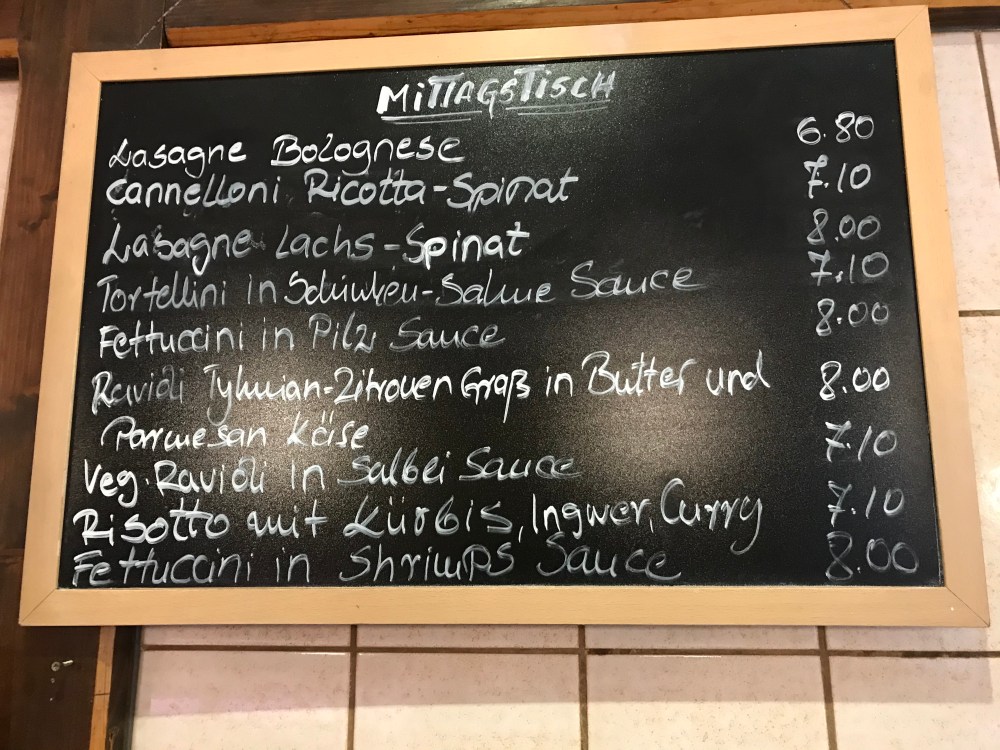 MITTAGSTISCH
Lasagne Bolognese 6.80
Cannelloni Ricotta-Spinat 7.10
Lasagne Lachs-Spinat 8.00
Tortellini in Schinken-Sahne Sauce 7.10
Fettuccini in Pilz Sauce 8.00
Ravioli Tyhmian-Zitronen Graß in Butter und 8.00
Parmesan Käse
Veg. Ravioli in Salbei Sauce 7.10
Risotto mit Kürbis, Ingwer, Curry 7.10
Fettuccini in Shrimps Sauce 8.00